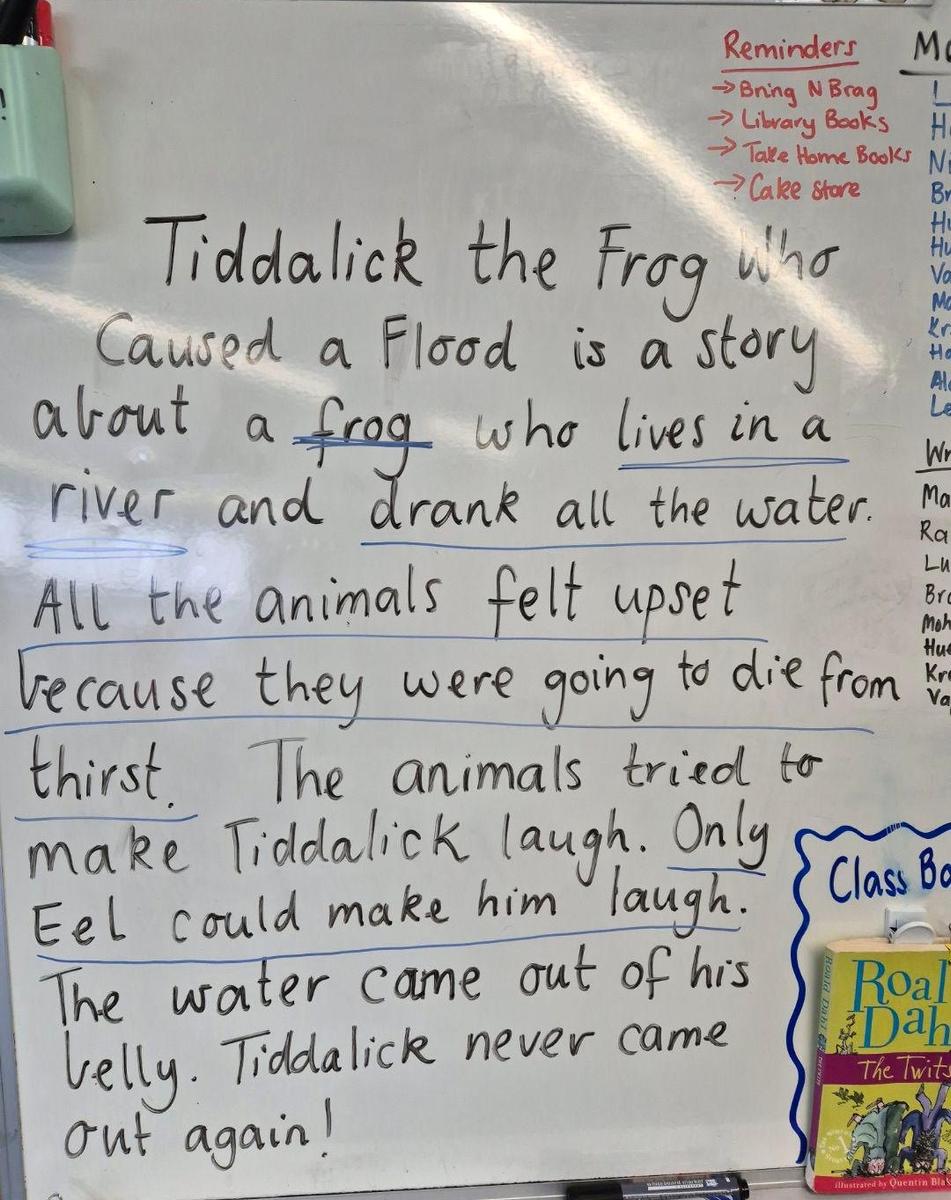 Reminders
→ Bring N Brag
→ Library Books
→ Take Home Books
→ Cake Store
Tiddalick the Frog Who
Caused a Flood is a story
about a frog who lives in a
river and drank all the water.
All the animals felt upset
because they were going to die from
thirst. The animals tried to
make Tiddalick laugh. Only
Eel could make him laugh.
The water came out of his
belly. Tiddalick never came
out again!
Class Bo
Roal
Dah
The Twits
illustrated by Quentin Bla